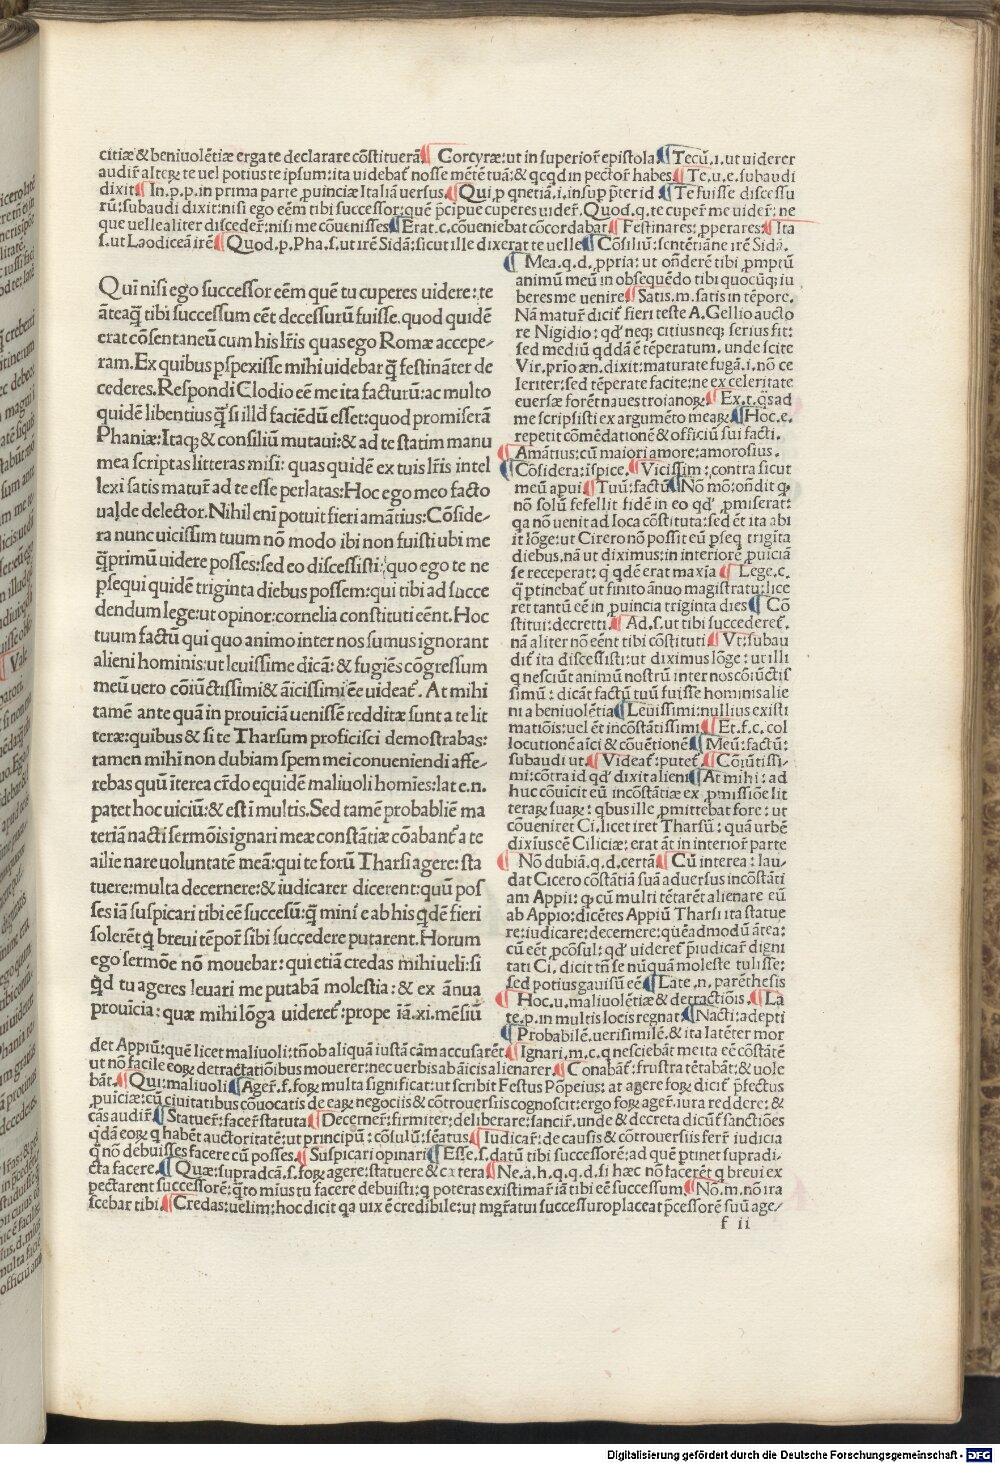 citiæ & beniuolẽtiæ erga te declarare cõstituerã ¶ Corcyræ: ut in superior̃ epistola ¶ Tecũ .i. ut uiderer
audir̃ alteꝝ te uel potius te ipsum: ita uidebat̃ nosse mẽtẽ tuã: & qcqd in pector̃ habes ¶ Te .u. e. subaudi
dixit ¶ In .p. p. in prima parte ꝓuinciæ Italiã uersus ¶ Qui p qnetiã .i. insup p̃ter id ¶ Te fuisse discessu
rũ: subaudi dixit: nisi ego eẽm tibi successor: quẽ p̃cipue cuperes uider̃. Quod .q. te cuper̃ me uider̃: ne
que uelle aliter disceder̃: nisi me cõuenisses ¶ Erat .c. cõueniebat cõcordabat ¶ Festinares: ꝓperares: ¶ Ita
s. ut Laodiceã irẽ ¶ Quod .p. Pha .s. ut irẽ Sidã: sicut ille dixerat te uelle ¶ Cõsiliũ: sentẽtiã ne irẽ Sidã.
Qui nisi ego successor eẽm quẽ tu cuperes uidere: te
ãteaq̃ tibi successum eẽt decessurũ fuisse. quod quidẽ
erat cõsentaneũ cum his lr̃is quas ego Romæ accepe-
ram. Ex quibus pspexisse mihi uidebar q̃ festinãter de
cederes. Respondi Clodio eẽ me ita facturũ: ac multo
quidẽ libentius q̃ si illd̃ faciẽdũ esset: quod promiserã
Phaniæ: Itaqꝫ & consiliũ mutaui: & ad te statim manu
mea scriptas litteras misi: quas quidẽ ex tuis lr̃is intel
lexi satis matur̃ ad te esse perlatas: Hoc ego meo facto
ualde delector. Nihil eni potuit fieri amãtius: Cõside-
ra nunc uicissum tuum nõ modo ibi non fuisti ubi me
q̃primũ uidere posses: sed eo discessisti: quo ego te ne
psequi quidẽ triginta diebus possem: qui tibi ad succe
dendum lege: ut opinor: cornelia constituti eẽnt. Hoc
tuum factũ qui quo animo inter nos sumus ignorant
alieni hominis: ut leuissime dicã: & fugiẽs cõgressum
meũ uero cõiũctissimi & ãicissimi eẽ uideat̃. At mihi
tamẽ ante quã in prouiciã uenissẽ redditæ sunt a te lit
teræ: quibus & si te Tharsum proficisci demostrabas:
tamen mihi non dubiam spem mei conueniendi affe-
rebas quũ ĩterea cr̃do equidẽ maliuoli homies: late .n.
patet hoc uiciũ: & est ĩ multis. Sed tamẽ probabliẽ ma
teriã nacti sermõis ignari meæ constãtiæ cõabant̃ a te
ailienare uoluntatẽ meã: qui te forũ Tharsi agere: sta
tuere: multa decernere: & iudicarer dicerent: quũ pos
ses iã suspicari tibi eẽ succesũ: q̃ mini e ab his q̃dẽ fieri
solerẽt q̃ breui tẽpor̃ sibi succedere putarent. Horum
ego sermõe nõ mouebar: qui etiã credas mihi ueli: si
q̃d tu ageres leuari me putabã molestia: & ex ãnua
prouicia: quæ mihi lõga uideret̃: prope iã .xi. mẽsiũ
¶ Mea .q. d. ꝓpria: ut onderẽ tibi ꝓmptũ
animũ meũ in obsequẽdo tibi quocũqꝫ iu
beres me uenire ¶ Satis .m. satis in tẽpore.
Nã matur̃ dicit̃ fieri teste A. Gellio aucto
re Nigidio: qd̃ neqꝫ citius neqꝫ serius fit:
sed mediũ qddã ẽ tẽperatum. unde scite
Vir. prio æn. dixit: maturate fugã .i. nõ ce
leriter: sed tẽperate facite: ne ex celeritate
euersæ forẽt naues troianoꝝ ¶ Ex .t. q̃s ad
me scripsisti ex argumẽto meaꝝ ¶ Hoc .e.
repetit cõmẽdationẽ & officiũ sui facti.
¶ Amãtius: cũ maiori amore: amorosius.
¶ Cõsidera: ĩspice. ¶ Vicissim: contra sicut
meũ apui ¶ Tuũ: factũ ¶ Nõ mõ: ondit q
nõ solũ fefellit fidẽ in eo qd̃ ꝓmiserat:
qa nõ uenit ad loca cõstituta: sed ẽt ita abi
it lõge: ut Cicero nõ possit eũ p̃seq trigĩta
diebus. nã ut diximus: in interiorẽ ꝓuiciã
se receperat: q qdẽ erat maxĩa ¶ Lege .c.
q̃ ptinebat̃ ut finito ãnuo magistratu: lice
ret tantũ eẽ in ꝓuincia triginta dies ¶ Cõ
stitui: decretti. ¶ Ad .s. ut tibi succederet̃.
nã aliter nõ eẽnt tibi cõstituti ¶ Vt: subau
dit̃ ita discessisti: ut diximus lõge: ut illi
q nesciũt animũ nostrũ inter nos cõiũctis
simũ: dicãt factũ tuũ fuisse hominis alie
ni a beniuolẽtia ¶ Leuissimi: nullius existi
matiõis: uel ẽt incõstãtissimi ¶ Et .f. c. col
locutionẽ aĩci & cõuẽtionẽ ¶ Meũ: factũ:
subaudi ut. ¶ Videat̃: putet̃. ¶ Coiũtissi-
mi: cõtra id qd̃ dixit alieni ¶ At mihi: ad
huc cõuicit eũ incõstãtiæ ex ꝓmissiõe lit
teraꝝ suaꝝ: qbus ille ꝓmittebat fore: ut
cõueniret Ci. licet iret Tharsũ: quã urbẽ
dixĩus eẽ Ciliciæ: erat ãt in interior̃ parte
¶ Nõ dubiã .q. d. certã ¶ Cũ interea: lau-
dat Cicero cõstãtiã suã aduersus incõstãti
am Appii: qꝫ cũ multi tẽtarẽt alienare eũ
ab Appio: dicẽtes Appiũ Tharsi ita statue
re: iudicare: decernere: quẽadmodũ ãtea:
cũ eẽt pcõsul: qd̃ uideret̃ p̃iudicar̃ digni
tati Ci. dicit tñ se nũquã moleste tulisse:
sed potius gauisũ eẽ ¶ Late .n. parẽthesis
¶ Hoc .u. maliuolẽtiæ & detractiõis. ¶ La
te .p. in multis locis regnat ¶ Nacti: adepti
¶ Probabilẽ. uerisimilẽ. & ita latẽter mor
det Appiũ: quẽ licet maliuoli: tñ ob aliquã iustã cãm accusarẽt ¶ Ignari .m. c. q nesciebãt me ita eẽ cõstãtẽ
ut nõ facile eoꝝ detractatiõibus mouerer: nec uerbis ab ãicis alienarer. ¶ Conabãt̃: frustra tẽtabãt: & uole
bãt. ¶ Qui: maliuoli ¶ Ager̃ .f. foꝝ multa significat: ut scribit Festus Põpeius: at agere foꝝ dicit̃ p̃fectus
ꝓuiciæ: cũ ciuitatibus cõuocatis de eaꝝ negociis & cõtrouersiis cognoscit: ergo foꝝ ager̃. iura reddere: &
cãs audir̃ ¶ Statuer̃: facer̃ statuta ¶ Decerner̃: firmiter: deliberare: sancir̃. unde & decreta dicũt̃ sanctiões
q̃dã eoꝝ q habẽt auctoritatẽ: ut principũ: cõsulũ: sẽatus ¶ Iudicar̃: de causis & cõtrouersiis ferr̃ iudicia
q̃ nõ debuisses facere cũ posses. ¶ Suspicari opinari ¶ Esse .s. datũ tibi successorẽ: ad quẽ p̃tinet supradi-
cta facere. ¶ Quæ: supradcã .s. foꝝ agere: statuere & cætera ¶ Ne .a. h. q. q. d. si hæc nõ facerẽt q breui ex
pectarent successorẽ: q̃to mius tu facere debuisti: q poteras existimar̃ iã tibi eẽ successum. ¶ Nõ .m. nõ ira
scebar tibi ¶ Credas: uelim: hoc dicit qa uix ẽ credibile: ut mgr̃atui successuro placeat p̃cessorẽ suũ age-
f ii
Digitalisierung gefördert durch die Deutsche Forschungsgemeinschaft - DFG